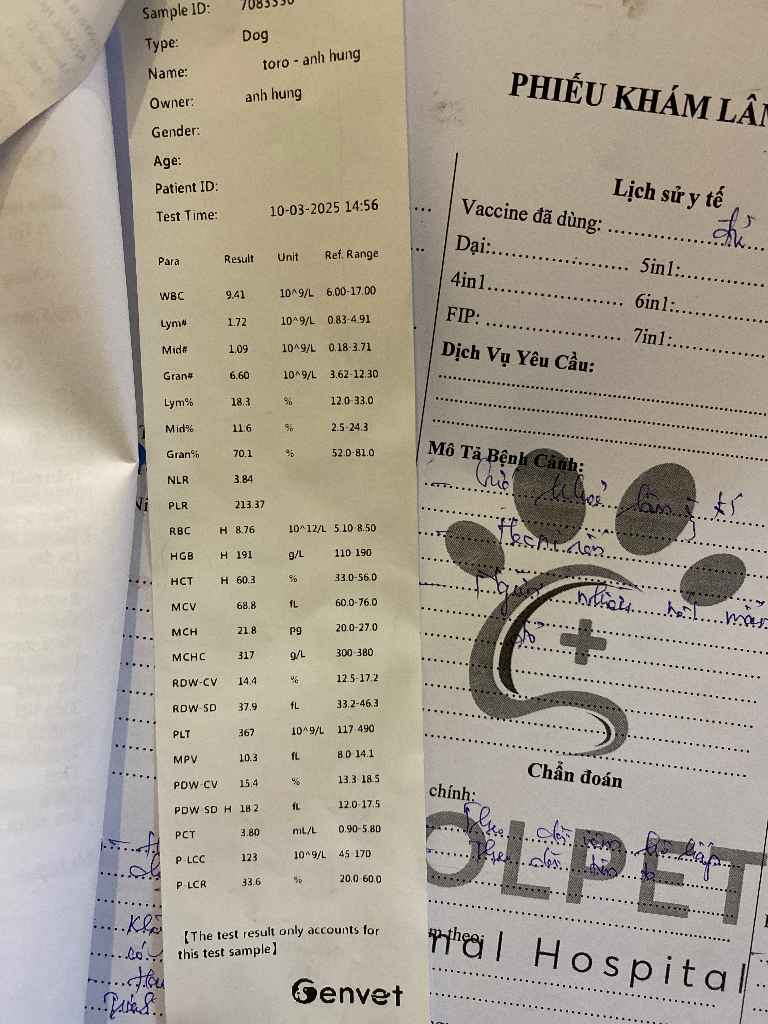 Sample ID: 7083330
Type: Dog
Name: toro - anh hung
Owner: anh hung
Gender:
Age:
Patient ID:
Test Time: 10-03-2025 14:56
Para Result Unit Ref. Range
WBC 9.41 10^9/L 6.00-17.00
Lym# 1.72 10^9/L 0.83-4.91
Mid# 1.09 10^9/L 0.18-3.71
Gran# 6.60 10^9/L 3.62-12.30
Lym% 18.3 % 12.0-33.0
Mid% 11.6 % 2.5-24.3
Gran% 70.1 % 52.0-81.0
NLR 3.84
PLR 213.37
RBC H 8.76 10^12/L 5.10-8.50
HGB H 191 g/L 110-190
HCT H 60.3 % 33.0-56.0
MCV 68.8 fL 60.0-76.0
MCH 21.8 pg 20.0-27.0
MCHC 317 g/L 300-380
RDW-CV 14.4 % 12.5-17.2
RDW-SD 37.9 fL 33.2-46.3
PLT 367 10^9/L 117-490
MPV 10.3 fL 8.0-14.1
PDW-CV 15.4 % 13.3-18.5
PDW-SD H 18.2 fL 12.0-17.5
PCT 3.80 mL/L 0.90-5.80
P-LCC 123 10^9/L 45-170
P-LCR 33.6 % 20.0-60.0
【The test result only accounts for
this test sample】
Genvet
PHIẾU KHÁM LÂM
Lịch sử y tế
Vaccine đã dùng:
Dại: 5in1:
4in1 6in1:
FIP: 7in1:
Dịch Vụ Yêu Cầu:
Mô Tả Bệnh Cảnh:
Chẩn đoán
chính:
OLPET
m theo:
nal Hospital